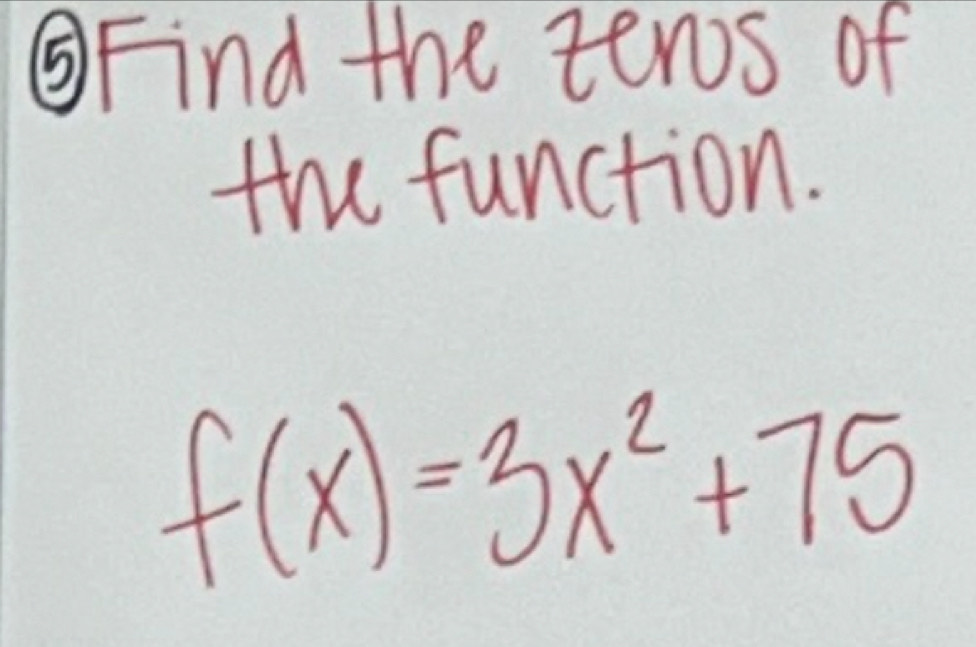 ⑤Find the zeros of
the function.
f(x)=3x²+75